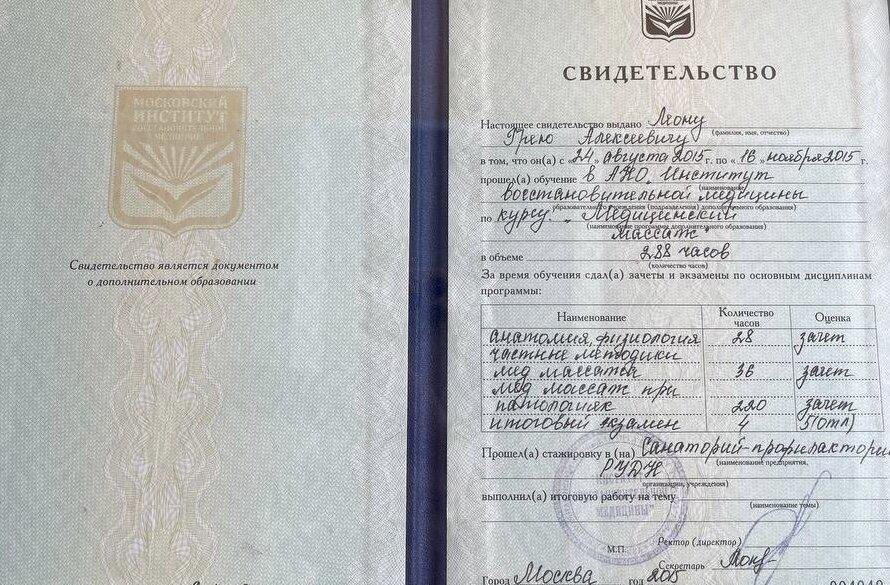 МОСКОВСКИЙ
ИНСТИТУТ
ВОССТАНОВИТЕЛЬНОЙ
МЕДИЦИНЫ
Свидетельство является документом
о дополнительном образовании
СВИДЕТЕЛЬСТВО
Настоящее свидетельство выдано Леону
Грею Алексеевичу (фамилия, имя, отчество)
в том, что он(а) с «24» августа 2015 г. по «16» ноября 2015 г.
прошел(а) обучение в АНО „Институт
(наименование
восстановительной медицины
образовательного учреждения (подразделения) дополнительного образования)
по курсу: „Медицинский
(наименование программы дополнительного образования)
массаж"
в объеме 288 часов
(количество часов)
За время обучения сдал(а) зачеты и экзамены по основным дисциплинам
программы:
Наименование Количество часов Оценка
анатомия, физиология 28 зачет
частные методики
мед массажа 36 зачет
мед массаж при
патологиях 220 зачет
итоговый экзамен 4 5(отл)
Прошел(а) стажировку в (на) Санаторий-профилактории
(наименование предприятия,
РУДН
организации, учреждения)
выполнил(а) итоговую работу на тему
(наименование темы)
М.П.
Ректор (директор)
Секретарь
Город Москва год 2015